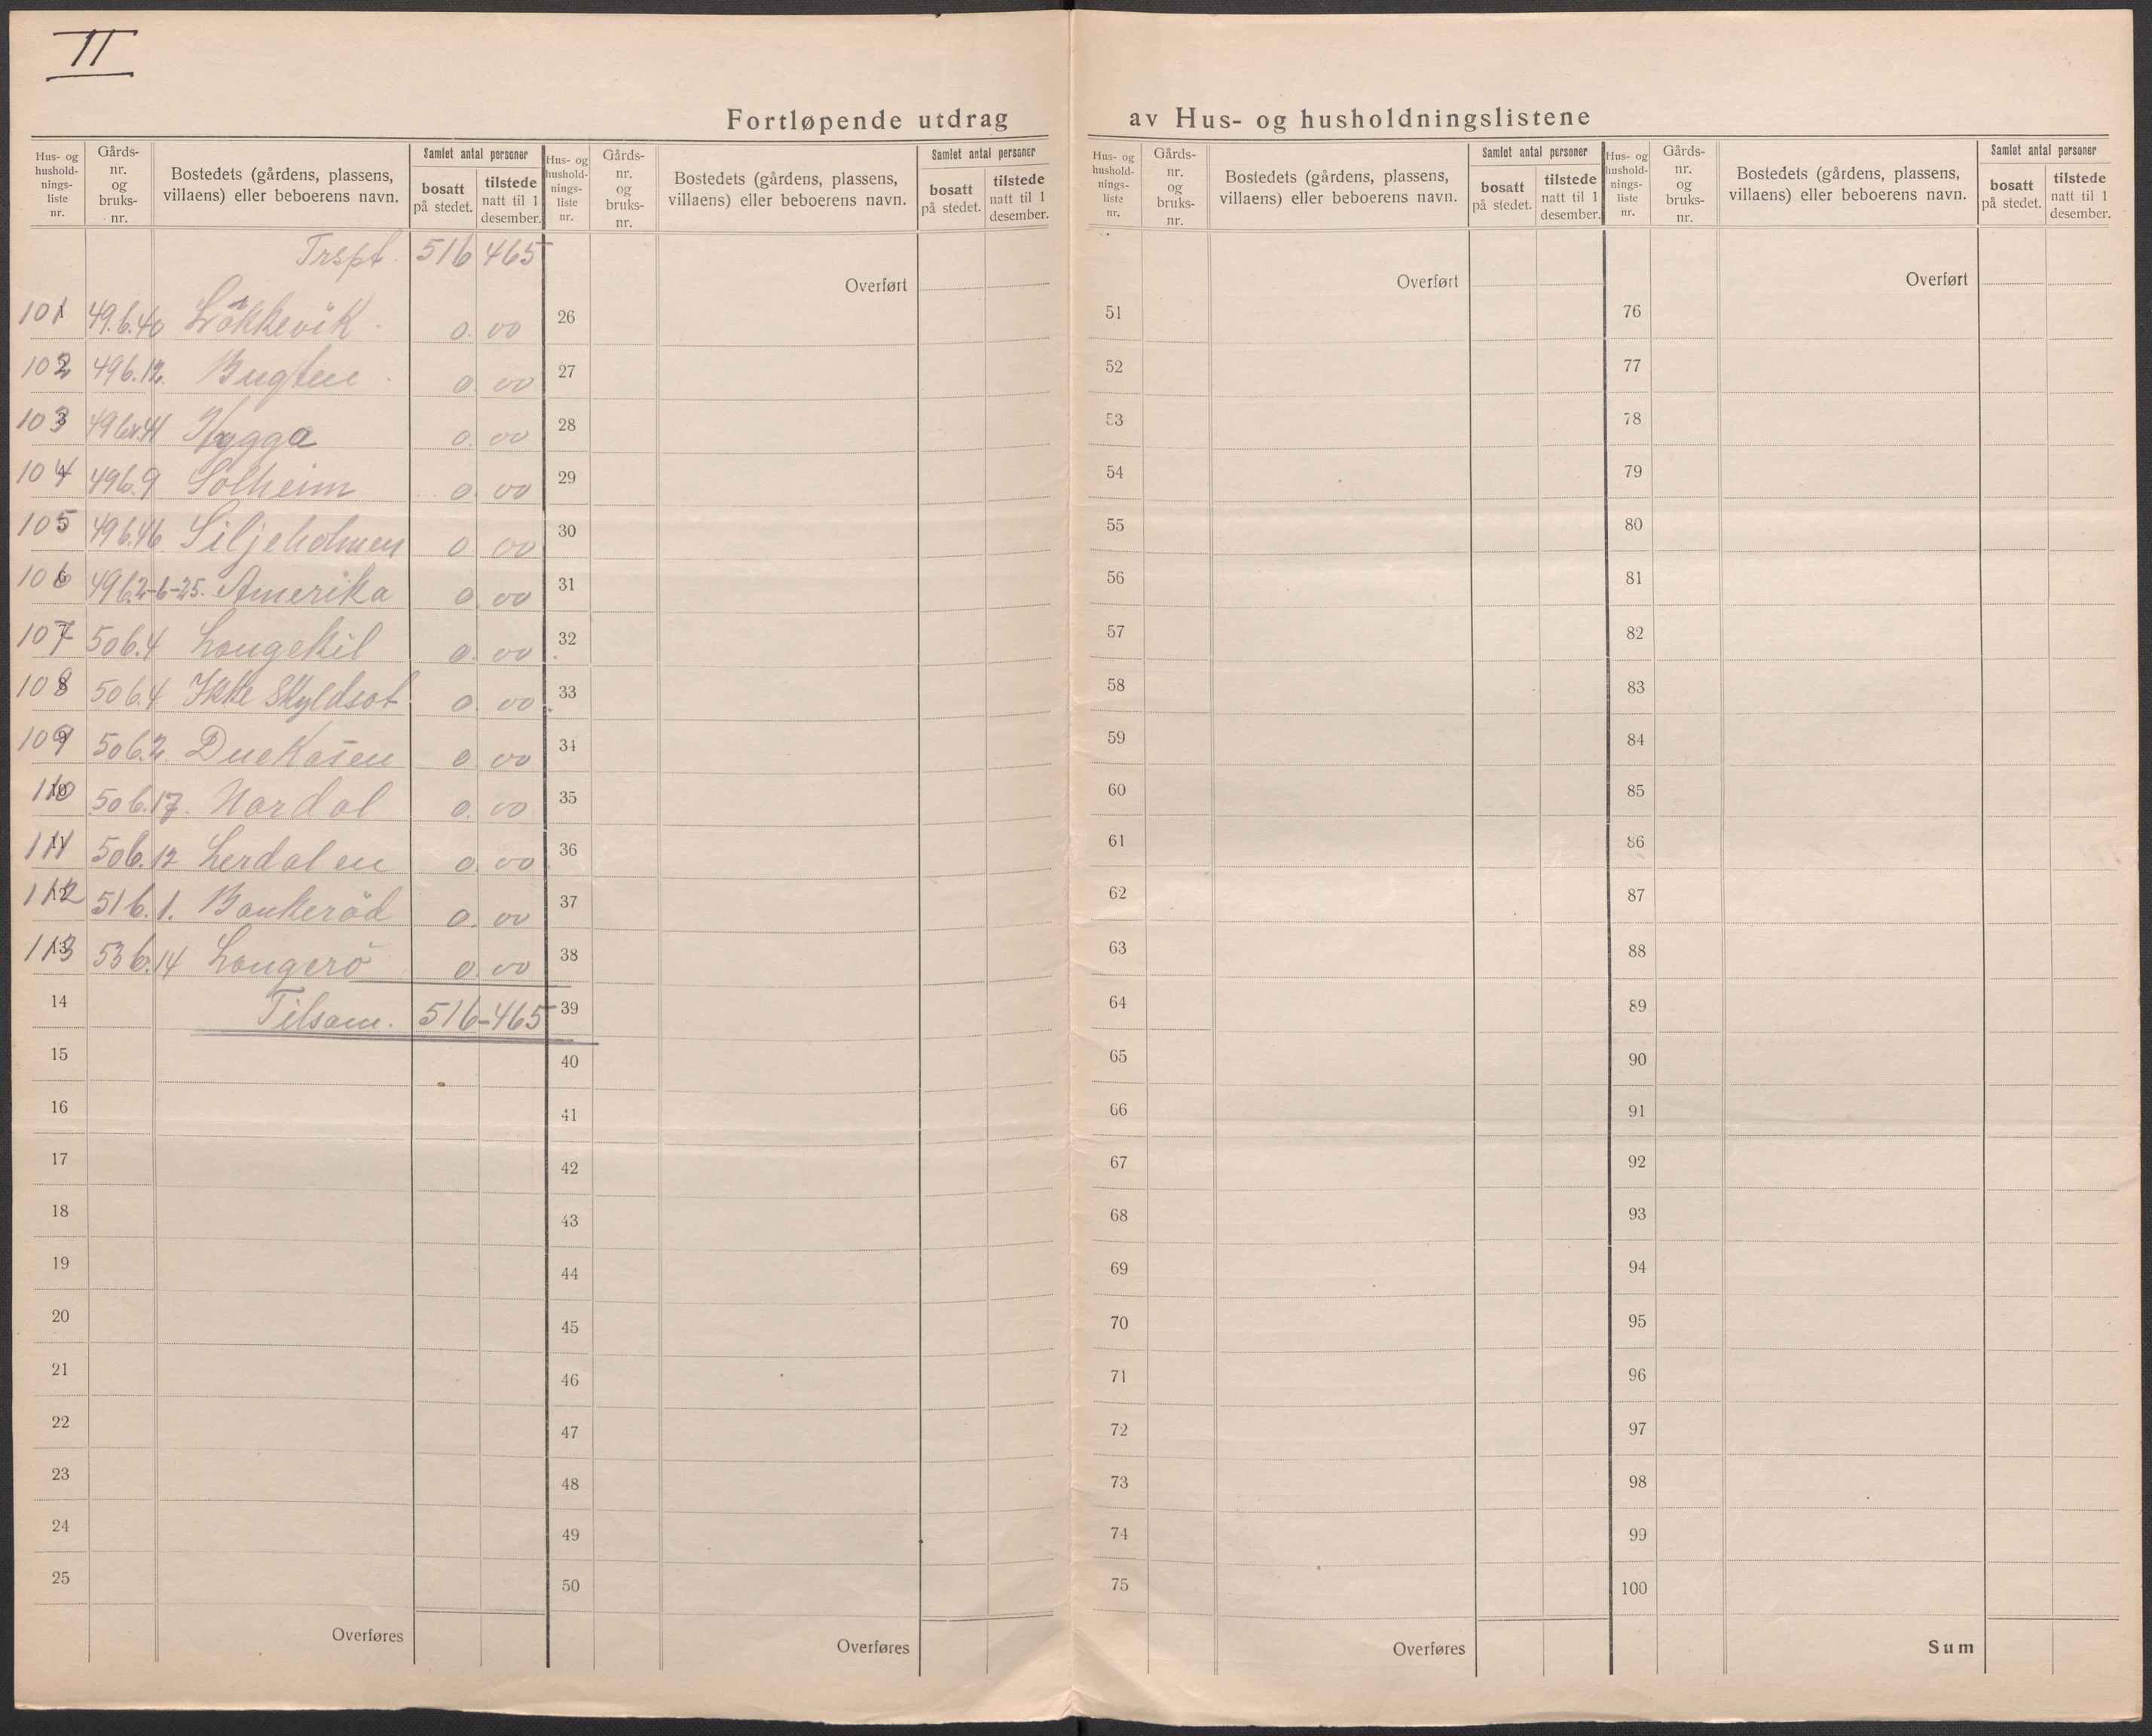 II
Fortløpende utdrag av Hus- og husholdningslistene
Hus- og hushold- nings- liste nr. | Gårds- nr. og bruks- nr. | Bostedets (gårdens, plassens, villaens) eller beboerens navn. | Samlet antal personer | bosatt på stedet. | tilstede natt til 1 desember.
Hus- og hushold- nings- liste nr. | Gårds- nr. og bruks- nr. | Bostedets (gårdens, plassens, villaens) eller beboerens navn. | Samlet antal personer | bosatt på stedet. | tilstede natt til 1 desember.
Hus- og hushold- nings- liste nr. | Gårds- nr. og bruks- nr. | Bostedets (gårdens, plassens, villaens) eller beboerens navn. | Samlet antal personer | bosatt på stedet. | tilstede natt til 1 desember.
Hus- og hushold- nings- liste nr. | Gårds- nr. og bruks- nr. | Bostedets (gårdens, plassens, villaens) eller beboerens navn. | Samlet antal personer | bosatt på stedet. | tilstede natt til 1 desember.
Trspt. 516 465
101 49.b.40 Løkkevik. 0. 00
102 49b.12. Bugten. 0. 00
103 49br.41 Hygga 0. 00
104 49b.9 Solheim 0. 00
105 49b.46 Siljeholmen 0. 00
106 49b.2-6-25. Amerika 0. 00
107 50b.4 Langekil 0. 00
108 50b.4 Ikke Skyldsat 0. 00
109 50b.2. Duekasen 0. 00
110 50b.17. Nordal 0. 00
111 50b.12 Lerdalen 0. 00
112 51b.1. Bankerød 0. 00
113 53b.14 Langerø 0. 00
14 Tilsam. 516-465
15
16
17
18
19
20
21
22
23
24
25
Overføres
Overført
26
27
28
29
30
31
32
33
34
35
36
37
38
39
40
41
42
43
44
45
46
47
48
49
50
Overføres
Overført
51
52
53
54
55
56
57
58
59
60
61
62
63
64
65
66
67
68
69
70
71
72
73
74
75
Overføres
Overført
76
77
78
79
80
81
82
83
84
85
86
87
88
89
90
91
92
93
94
95
96
97
98
99
100
Sum